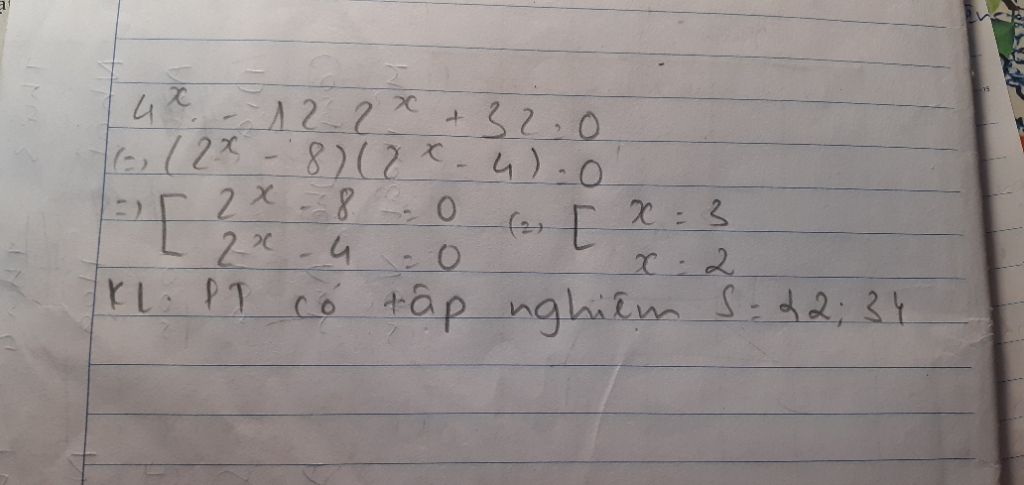 4^x - 12.2^x + 32 = 0
(=) (2^x - 8)(2^x - 4) = 0
=) [ 2^x - 8 = 0 (=) [ x = 3
2^x - 4 = 0 x = 2
KL: PT có tập nghiệm S = {2; 3}